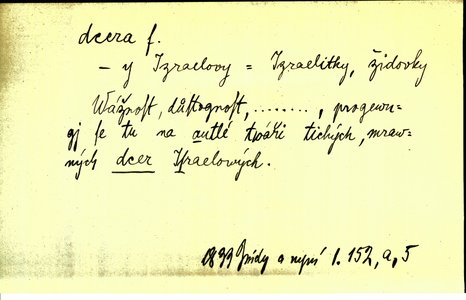 dcera f.
– y Izraelovy = Izraelitky, židovky
Wážnost, důstognost, ........, progewu-
gj se tu na autlé twáři tichých, mraw-
ných dcer Izraelových.
1839 a nyní 1. 152, a, 5